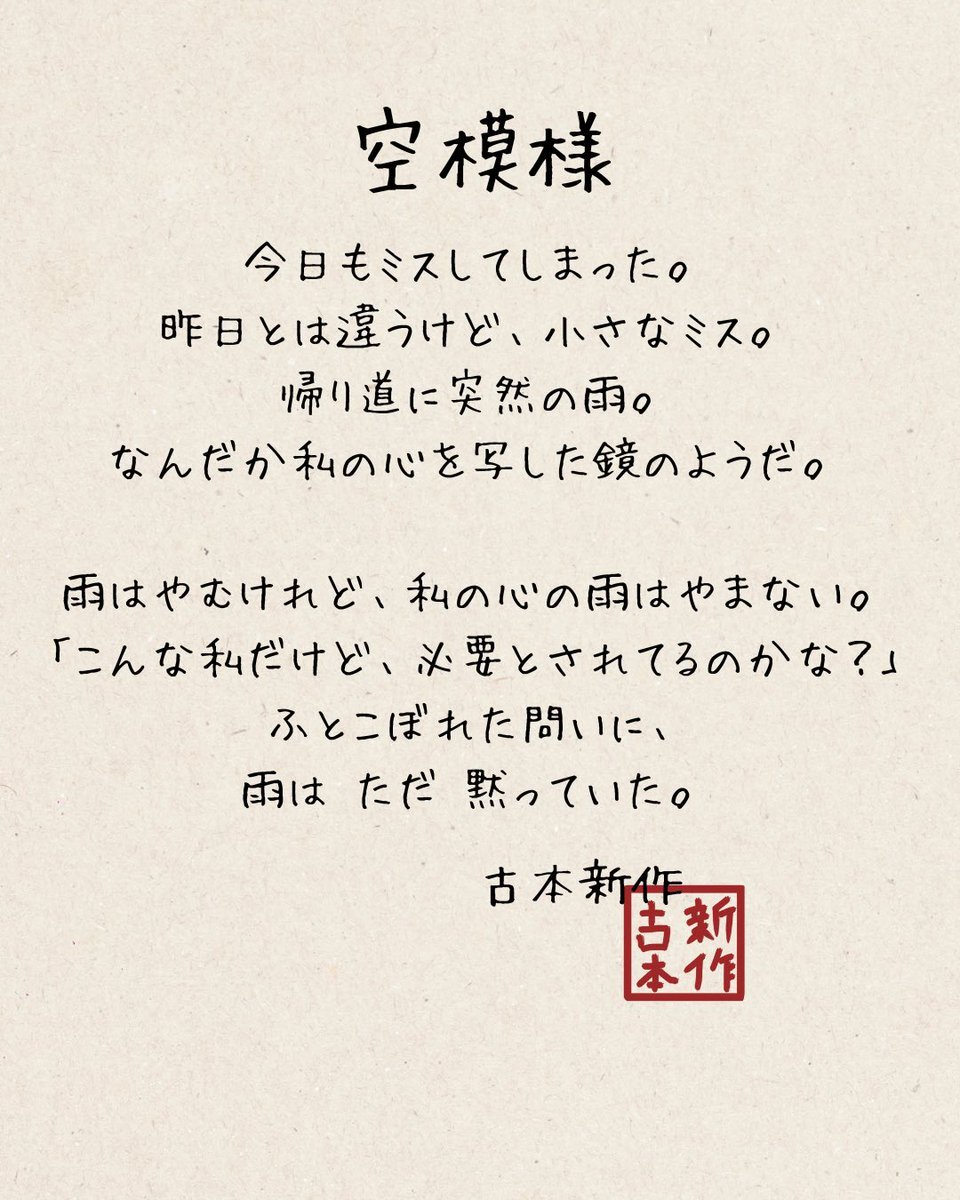 空模様
今日もミスしてしまった。
昨日とは違うけど、小さなミス。
帰り道に突然の雨。
なんだか私の心を写した鏡のようだ。
雨はやむけれど、私の心の雨はやまない。
「こんな私だけど、必要とされてるのかな？」
ふとこぼれた問いに、
雨は ただ 黙っていた。
古本新作
新作
古本